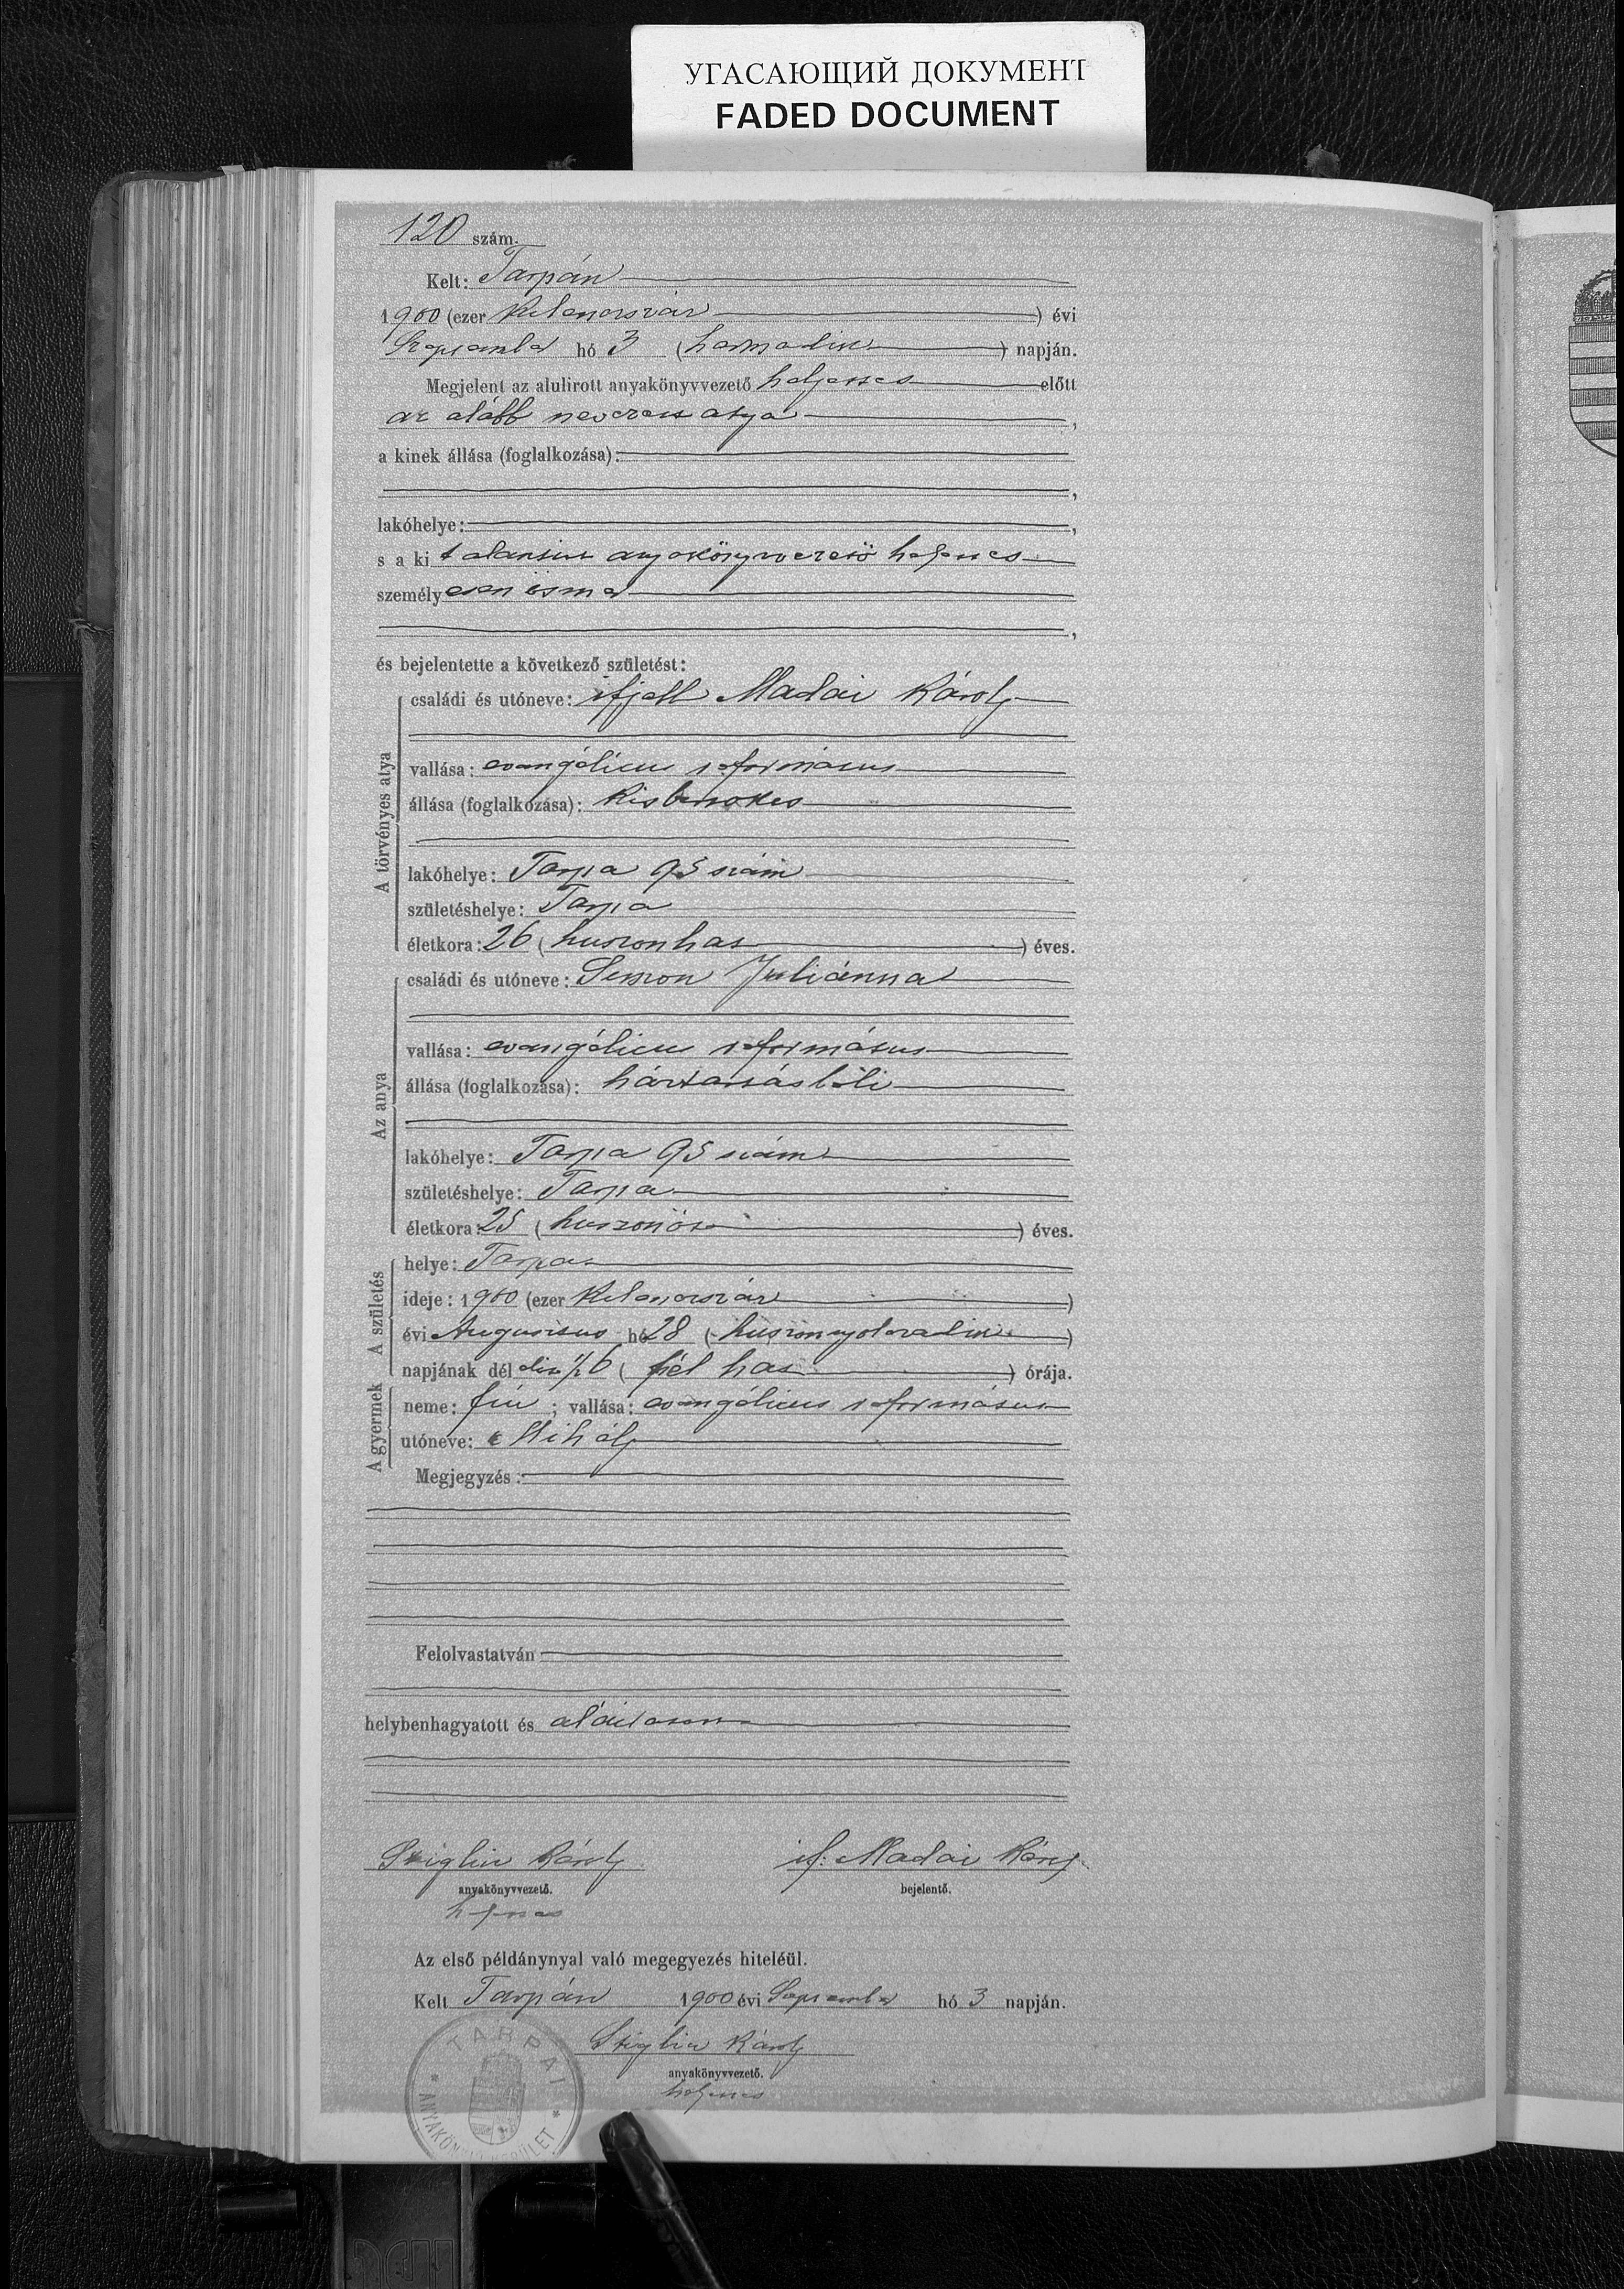 УГАСАЮЩИЙ ДОКУМЕНТ
FADED DOCUMENT
120 szám.
Kelt: Tarpán
1900 (ezer kilenczszáz) évi
Szeptember hó 3 (harmadik) napján.
Megjelent az alulirott anyakönyvvezető helyettes előtt
az alább nevezett atya,
a kinek állása (foglalkozása):
,
lakóhelye: ,
s a ki t alantirt anyakönyvvezető helyettes
személyesen ismer
,
és bejelentette a következő születést:
A törvényes atya
családi és utóneve: ifjabb Madai Károly
vallása: evangélicus református
állása (foglalkozása): kisbirtokos
lakóhelye: Tarpa 95 szám
születéshelye: Tarpa
életkora: 26 (huszonhat) éves.
Az anya
családi és utóneve: Simon Juliánna
vallása: evangélicus református
állása (foglalkozása): háztartásbeli
lakóhelye: Tarpa 95 szám
születéshelye: Tarpa
életkora: 25 (huszonöt) éves.
A születés
helye: Tarpa
ideje: 1900 (ezer kilenczszáz)
évi Augusztus hó 28 (huszonnyolczadik)
napjának dél előtt ½6 (fél hat) órája.
A gyermek
neme: fiú; vallása: evangélicus református
utóneve: Mihály
Megjegyzés:
Felolvastatván
helybenhagyatott és aláiratott
Stiglin Károly
anyakönyvvezető.
helyettes
if. Madai Károly
bejelentő.
Az első példánynyal való megegyezés hiteléül.
Kelt Tarpán 1900 évi Szeptember hó 3 napján.
Stiglin Károly
anyakönyvvezető.
helyettes
TARPAI
* ANYAKÖNYVI KERÜLET *